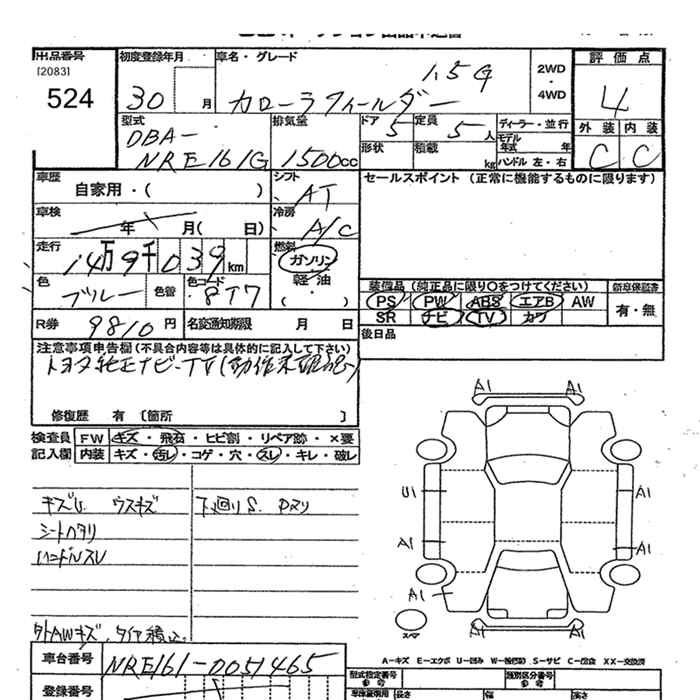 出品番号 [2083] 524
初度登録年月 30 月
車名・グレード 1.5G カローラフィールダー
2WD・4WD
評価点 4
外装 C 内装 C
型式 DBA- NRE161G
排気量 1500cc
ドア 5 形状
定員 5人 積載 kg
ディーラー・並行
モデル年式 年
ハンドル 左・右
車歴 自家用・( )
シフト AT
セールスポイント (正常に機能するものに限ります)
車検 年 月( 日)
冷房 A/C
走行 14万9千039km
燃料 ガソリン・軽油・( )
色 ブルー 色替 色コード 8T7
装備品 (純正品に限り〇をつけてください) 新車保証書
PS PW ABS エアB AW 有・無
SR ナビ TV カワ
R券 9810円 名変通知期限 月 日
後日品
注意事項申告欄(不具合内容等は具体的に記入して下さい)
トヨタ純正ナビ-TV(動作未確認)
修復歴 有 [箇所 ]
検査員 FW キズ・飛石・ヒビ割・リペア跡・×要
記入欄 内装 キズ・汚レ・コゲ・穴・スレ・キレ・破レ
キズU ウスキズ 下廻りS.
シート
ハンドルスレ
A1 A1
U1 A1
A1 A1
A1
A1 A1
スペア
外AWキズ. タイヤ積込.
A-キズ E-エクボ U-凹み S-サビ C-腐食 XX-交換済
車台番号 NRE161-0051465
型式指定番号 参考 類別区分番号 参考
登録番号
長さ 幅 高さ